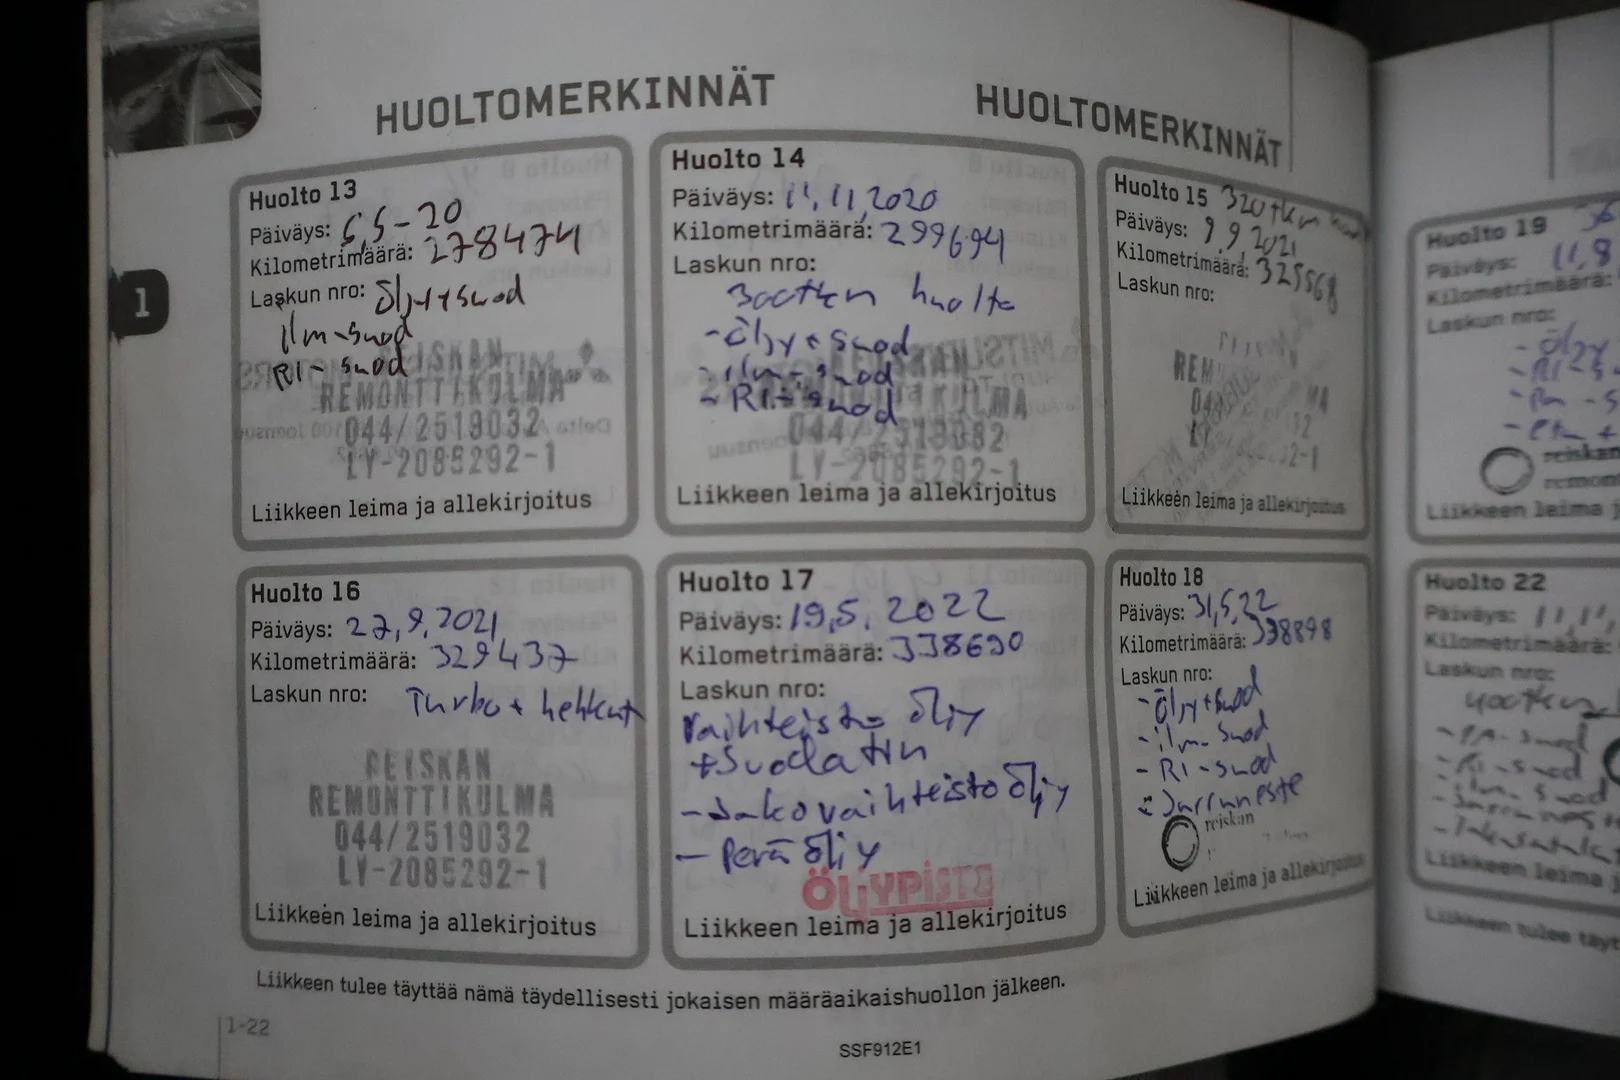 HUOLTOMERKINNÄT
HUOLTOMERKINNÄT
Huolto 13
Päiväys: 5,5-20
Kilometrimäärä: 278474
Laskun nro: Öljy+suod
Ilm-suod
RI-suod
REISKAN
REMONTTIKULMA
044/2519032
LY-2085292-1
Liikkeen leima ja allekirjoitus
Huolto 14
Päiväys: 11,11,2020
Kilometrimäärä: 299694
Laskun nro:
300tkm huolto
-Öljy+suod
-ilm-suod
-RI-suod
REMONTTIKULMA
044/2519032
LY-2085292-1
Liikkeen leima ja allekirjoitus
Huolto 15 320tkm
Päiväys: 9,9,2021
Kilometrimäärä: 325568
Laskun nro:
Liikkeen leima ja allekirjoitus
1
Huolto 16
Päiväys: 27,9,2021
Kilometrimäärä: 329437
Laskun nro: Turbo + hehkut
REISKAN
REMONTTIKULMA
044/2519032
LY-2085292-1
Liikkeen leima ja allekirjoitus
Huolto 17
Päiväys: 19,5,2022
Kilometrimäärä: 338690
Laskun nro:
Vaihteisto öljy
+suodatin
-Jakovaihteistoöljy
-Perä öljy
ÖLJYPISTE
Liikkeen leima ja allekirjoitus
Huolto 18
Päiväys: 31,5,22
Kilometrimäärä: 338898
Laskun nro:
-Öljy+suod
-ilm-suod
-RI-suod
-Jarruneste
reiskan
Liikkeen leima ja allekirjoitus
Liikkeen tulee täyttää nämä täydellisesti jokaisen määräaikaishuollon jälkeen.
1-22
SSF912E1
Huolto 19
Päiväys: 11,8
Kilometrimäärä:
Laskun nro:
-Öljy
reiskan
Liikkeen leima
Huolto 22
Päiväys:
Kilometrimäärä:
Laskun nro:
Liikkeen leima
Liikkeen tulee